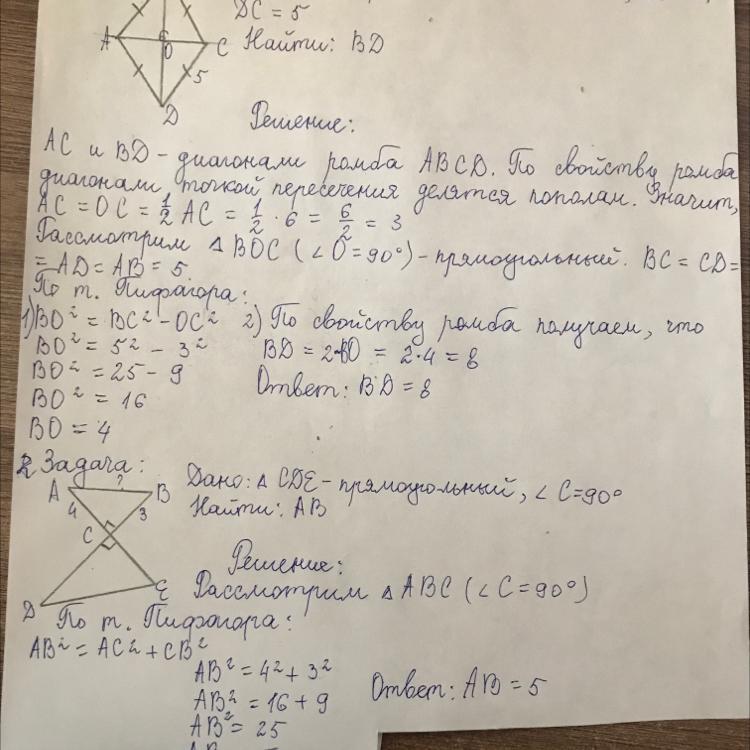 DC = 5
A
6
O
C
5
D
Найти: BD
Решение:
AC и BD - диагонали ромба ABCD. По свойству ромба
диагонали точкой пересечения делятся пополам. Значит,
AC = OC = 1/2 AC = 1/2 · 6 = 6/2 = 3
Рассмотрим △ BOC (∠O = 90°) - прямоугольный. BC = CD =
= AD = AB = 5
По т. Пифагора:
1) BO² = BC² - OC²
BO² = 5² - 3²
BO² = 25 - 9
BO² = 16
BO = 4
2) По свойству ромба получаем, что
BD = 2·BO = 2·4 = 8
Ответ: BD = 8
2 Задача:
A
?
B
4
3
C
D
E
Дано: △ CDE - прямоугольный, ∠C=90°
Найти: AB
Решение:
Рассмотрим △ ABC (∠C = 90°)
По т. Пифагора:
AB² = AC² + CB²
AB² = 4² + 3²
AB² = 16 + 9
AB² = 25
Ответ: AB = 5